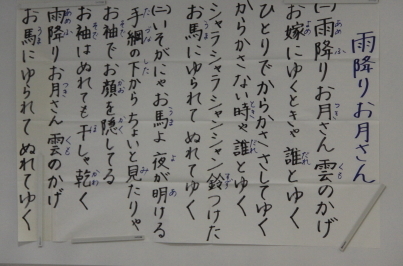 雨降りお月さん
㈠雨降りお月さん 雲のかげ
お嫁にゆくときゃ 誰とゆく
ひとりでからかさ さしてゆく
からかさない時ゃ 誰とゆく
シャラシャラ シャンシャン 鈴つけた
お馬にゆられて ぬれてゆく
㈡いそがにゃお馬よ 夜が明ける
手綱の下から ちょいと見たりゃ
お袖でお顔を 隠してる
お袖はぬれても 干しゃ乾く
雨降りお月さん 雲のかげ
お馬にゆられて ぬれてゆく